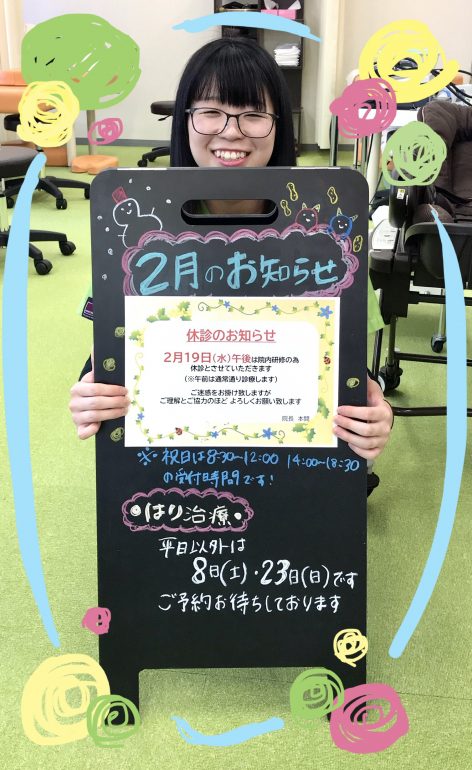 2月のお知らせ
休診のお知らせ
2月19日(水)午後は院内研修の為
休診とさせていただきます
(※午前は通常通り診療します)
ご迷惑をお掛け致しますが
ご理解とご協力のほど よろしくお願い致します
院長 本間
※祝日は8:30~12:00 14:00~18:30
の受付時間です!
・はり治療・
平日以外は
8日(土)・23日(日)です
ご予約お待ちしております